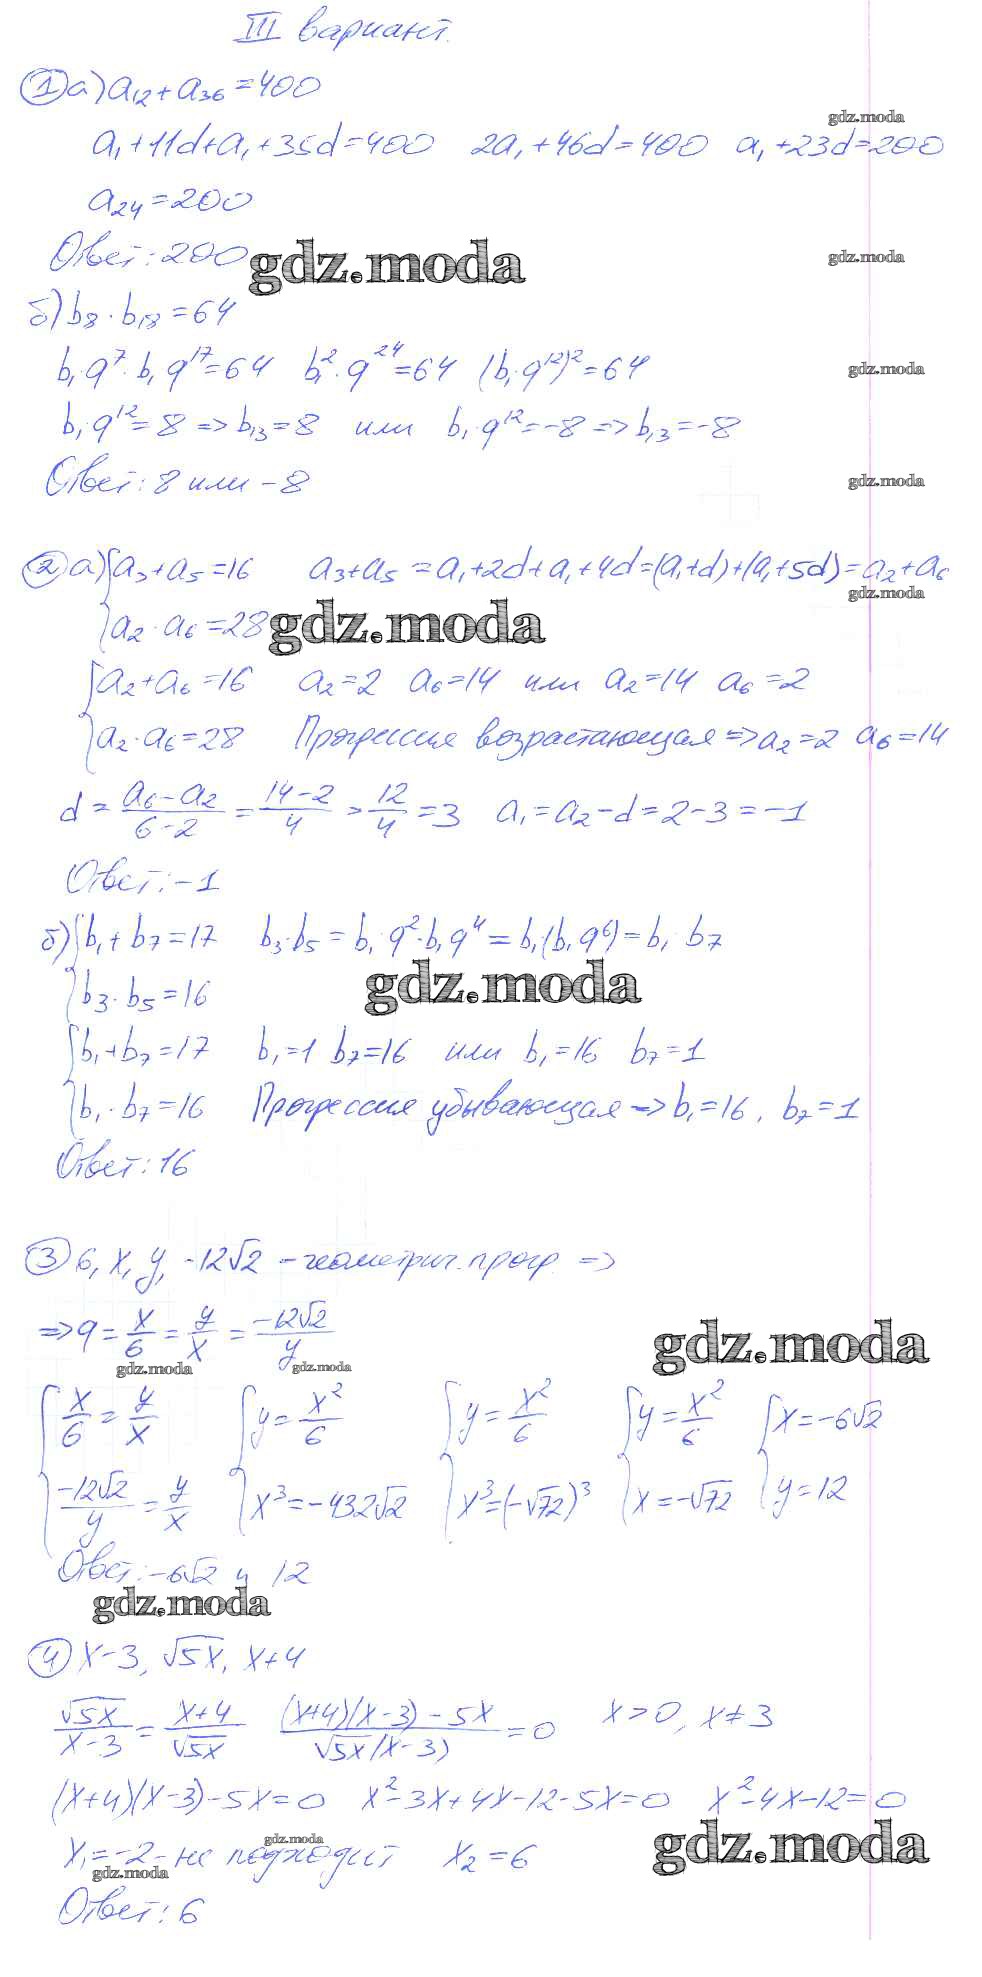 III вариант.
① а) a₁₂ + a₃₆ = 400
gdz.moda
a₁+11d+a₁+35d=400   2a₁+46d=400   a₁+23d=200
a₂₄=200
Ответ: 200
gdz.moda
gdz.moda
б) b₈ · b₁₈ = 64
b₁q⁷ · b₁q¹⁷=64   b₁²·q²⁴=64   (b₁·q¹²)²=64
gdz.moda
b₁q¹²=8 => b₁₃=8   или   b₁·q¹²=-8 => b₁₃=-8
Ответ: 8 или -8
gdz.moda
② а) { a₃+a₅=16   a₃+a₅ = a₁+2d+a₁+4d=(a₁+d)+(a₁+5d)=a₂+a₆
gdz.moda
a₂·a₆=28
gdz.moda
{ a₂+a₆=16   a₂=2   a₆=14   или   a₂=14   a₆=2
a₂·a₆=28   Прогрессия возрастающая => a₂=2   a₆=14
d = (a₆-a₂)/(6-2) = (14-2)/4 = 12/4 = 3   a₁=a₂-d=2-3=-1
Ответ: -1
б) { b₁+b₇=17   b₃·b₅ = b₁·q²·b₁q⁴ = b₁·(b₁q⁶) = b₁·b₇
b₃·b₅=16
gdz.moda
{ b₁+b₇=17   b₁=1   b₇=16   или   b₁=16   b₇=1
b₁·b₇=16   Прогрессия убывающая => b₁=16, b₇=1
Ответ: 16
③ 6, x, y, -12√2 - геометрич. прогр. =>
=> q = x/6 = y/x = -12√2/y
gdz.moda
gdz.moda
gdz.moda
{ x/6 = y/x   { y = x²/6   { y = x²/6   { y = x²/6   { x=-6√2
-12√2/y = y/x   x³=-432√2   x³=(-√72)³   x=-√72   y=12
Ответ: -6√2 и 12
gdz.moda
④ x-3, √5x, x+4
√5x/(x-3) = (x+4)/√5x   ((x+4)(x-3)-5x)/(√5x(x-3)) = 0   x>0, x≠3
(x+4)(x-3)-5x=0   x²-3x+4x-12-5x=0   x²-4x-12=0
gdz.moda
gdz.moda
x₁=-2 - не подходит   x₂=6
gdz.moda
Ответ: 6